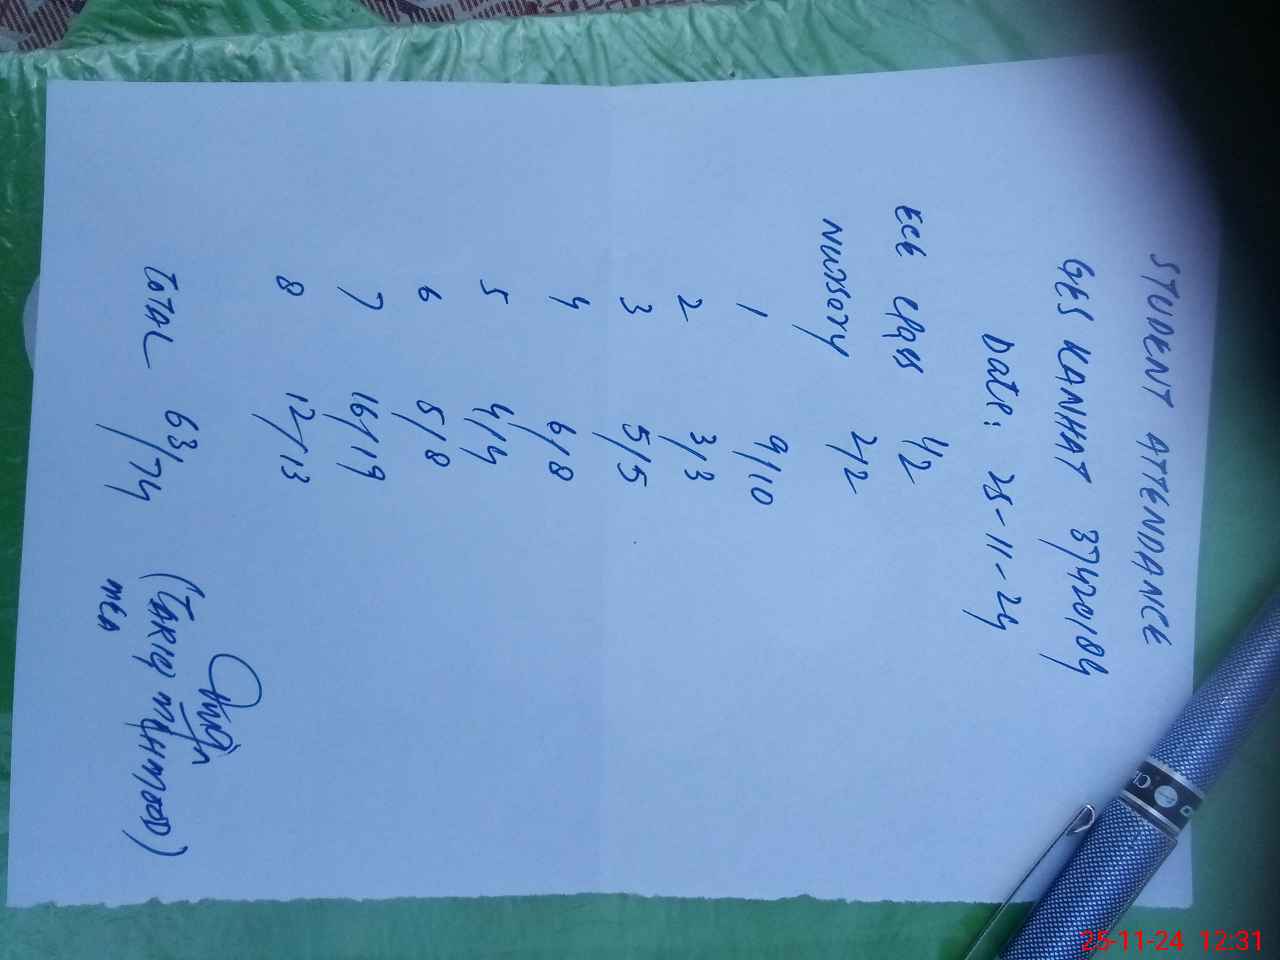 STUDENT ATTENDANCE
GES KANHAT 37420184
Date: 25-11-24
ECE Class 1/2
Nursery 2/2
1 9/10
2 3/3
3 5/5
4 6/8
5 4/4
6 5/8
7 16/19
8 12/13
Total 63/74
(TARIQ MAHMOOD)
MEA
25-11-24 12:31